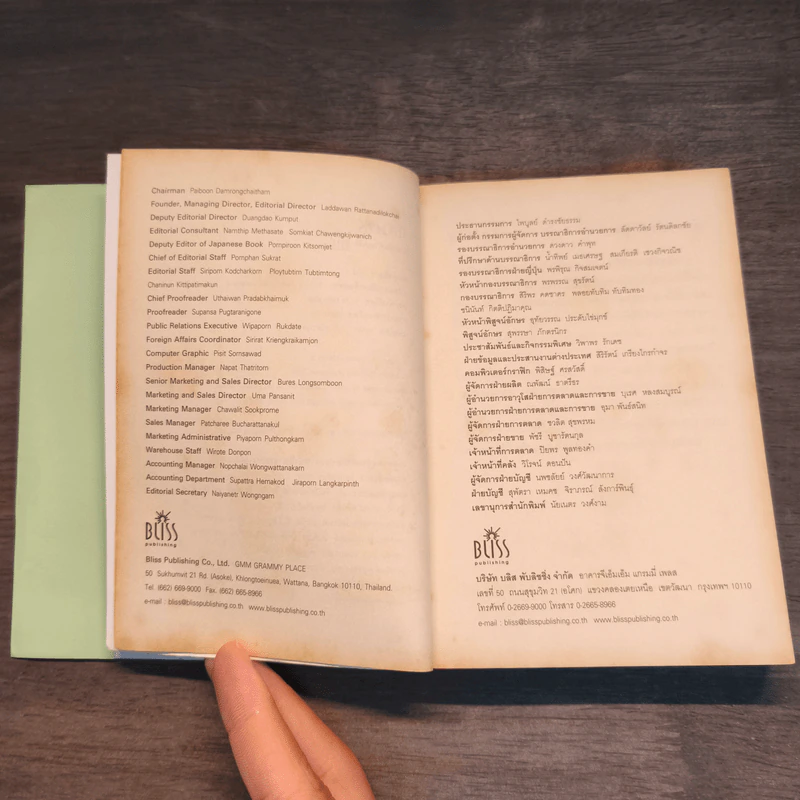 Chairman Paiboon Damrongchaitham
Founder, Managing Director, Editorial Director Laddawan Rattanadilokchai
Deputy Editorial Director Duangdao Kumput
Editorial Consultant Namthip Methasate Somkiat Chawengkijwanich
Deputy Editor of Japanese Book Pornpiroon Kitsomjet
Chief of Editorial Staff Pornphan Sukrat
Editorial Staff Siriporn Kodcharkorn Ploytubtim Tubtimtong
Chaninun Kittipatimakun
Chief Proofreader Uthaiwan Pradabkhaimuk
Proofreader Supansa Pugtaranigone
Public Relations Executive Wipaporn Rukdate
Foreign Affairs Coordinator Sirirat Kriengkraikamjon
Computer Graphic Pisit Sornsawad
Production Manager Napat Thatritorn
Senior Marketing and Sales Director Bures Longsomboon
Marketing and Sales Director Uma Pansanit
Marketing Manager Chawalit Sookprome
Sales Manager Patcharee Bucharattanakul
Marketing Administrative Piyaporn Pulthongkam
Warehouse Staff Wirote Donpon
Accounting Manager Nopchalai Wongwattanakarn
Accounting Department Supattra Hemakod Jiraporn Langkarpinth
Editorial Secretary Naiyanetr Wongngarn
BLISS
publishing
Bliss Publishing Co., Ltd. GMM GRAMMY PLACE
50 Sukhumvit 21 Rd. (Asoke), Khlongtoeinuea, Wattana, Bangkok 10110, Thailand.
Tel (662) 669-9000 Fax. (662) 665-8966
e-mail : bliss@blisspublishing.co.th www.blisspublishing.co.th
ประธานกรรมการ ไพบูลย์ ดำรงชัยธรรม
ผู้ก่อตั้ง กรรมการผู้จัดการ บรรณาธิการอำนวยการ ลัดดาวัลย์ รัตนดิลกชัย
รองบรรณาธิการอำนวยการ ดวงดาว คำพุท
ที่ปรึกษาด้านบรรณาธิการ น้ำทิพย์ เมธเศรษฐ สมเกียรติ เชวงกิจวณิช
รองบรรณาธิการฝ่ายญี่ปุ่น พรพิรุณ กิจสมเจตน์
หัวหน้ากองบรรณาธิการ พรพรรณ สุขรัตน์
กองบรรณาธิการ สิริพร คดชาคร พลอยทับทิม ทับทิมทอง
ชนินันท์ กิตติปฏิมาคุณ
หัวหน้าพิสูจน์อักษร อุทัยวรรณ ประดับไข่มุกข์
พิสูจน์อักษร สุพรรษา ภักตรนิกร
ประชาสัมพันธ์และกิจกรรมพิเศษ วิพาพร รักเดช
ฝ่ายข้อมูลและประสานงานต่างประเทศ สิริรัตน์ เกรียงไกรกำจร
คอมพิวเตอร์กราฟิก พิสิษฐ์ ศรสวัสดิ์
ผู้จัดการฝ่ายผลิต ณพัฒน์ ธาตรีธร
ผู้อำนวยการอาวุโสฝ่ายการตลาดและการขาย บุเรศ หลงสมบูรณ์
ผู้อำนวยการฝ่ายการตลาดและการขาย อุมา พันธ์สนิท
ผู้จัดการฝ่ายการตลาด ชวลิต สุขพรหม
ผู้จัดการฝ่ายขาย พัชรี บูชารัตนกุล
เจ้าหน้าที่การตลาด ปิยพร พูลทองคำ
เจ้าหน้าที่คลัง วิโรจน์ ดอนปัน
ผู้จัดการฝ่ายบัญชี นพชลัยย์ วงศ์วัฒนาการ
ฝ่ายบัญชี สุพัตรา เหมคช จิราภรณ์ ลังการ์พินธุ์
เลขานุการสำนักพิมพ์ นัยเนตร วงศ์งาม
BLISS
publishing
บริษัท บลิส พับลิชชิ่ง จำกัด อาคารจีเอ็มเอ็ม แกรมมี่ เพลส
เลขที่ 50 ถนนสุขุมวิท 21 (อโศก) แขวงคลองเตยเหนือ เขตวัฒนา กรุงเทพฯ 10110
โทรศัพท์ 0-2669-9000 โทรสาร 0-2665-8966
e-mail : bliss@blisspublishing.co.th www.blisspublishing.co.th